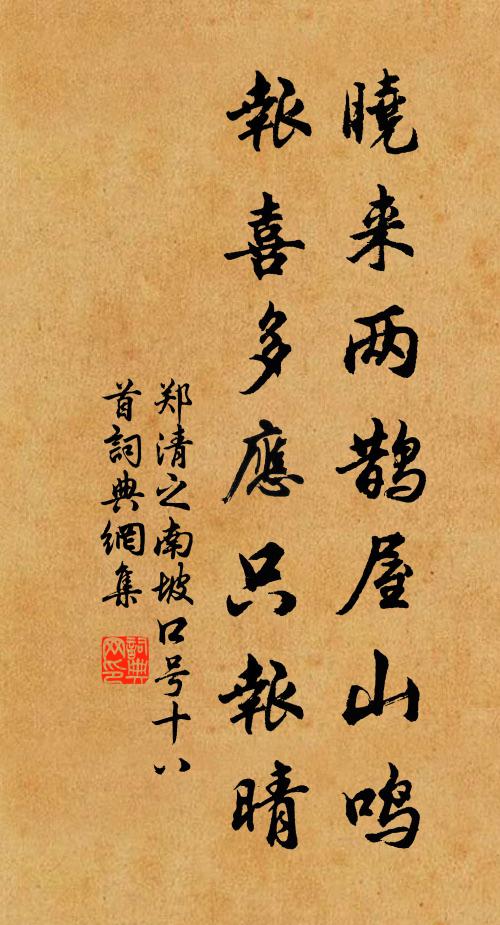 曉来两鹊屋山鸣
報喜多應只報晴
郑清之南坡口号十八
首詞典網集
詞典网印